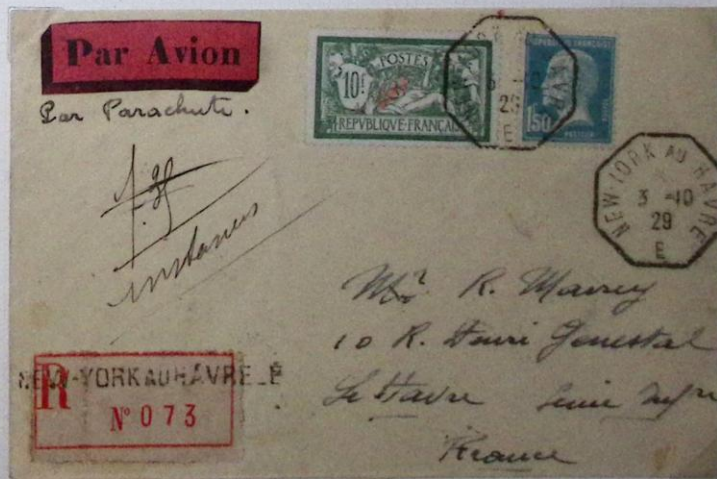 Par Avion
Par Parachute.
POSTES
10f
REPVBLIQUE·FRANÇAISE
REPUBLIQUE FRANÇAISE
1F50
29
E
NEW-YORK AU HAVRE
3 -10
29
E
Mr R.
10 R. Henri Genestal
Le Havre Seine Infre
France
NEW-YORK AU HAVRE_E
R
N° 073